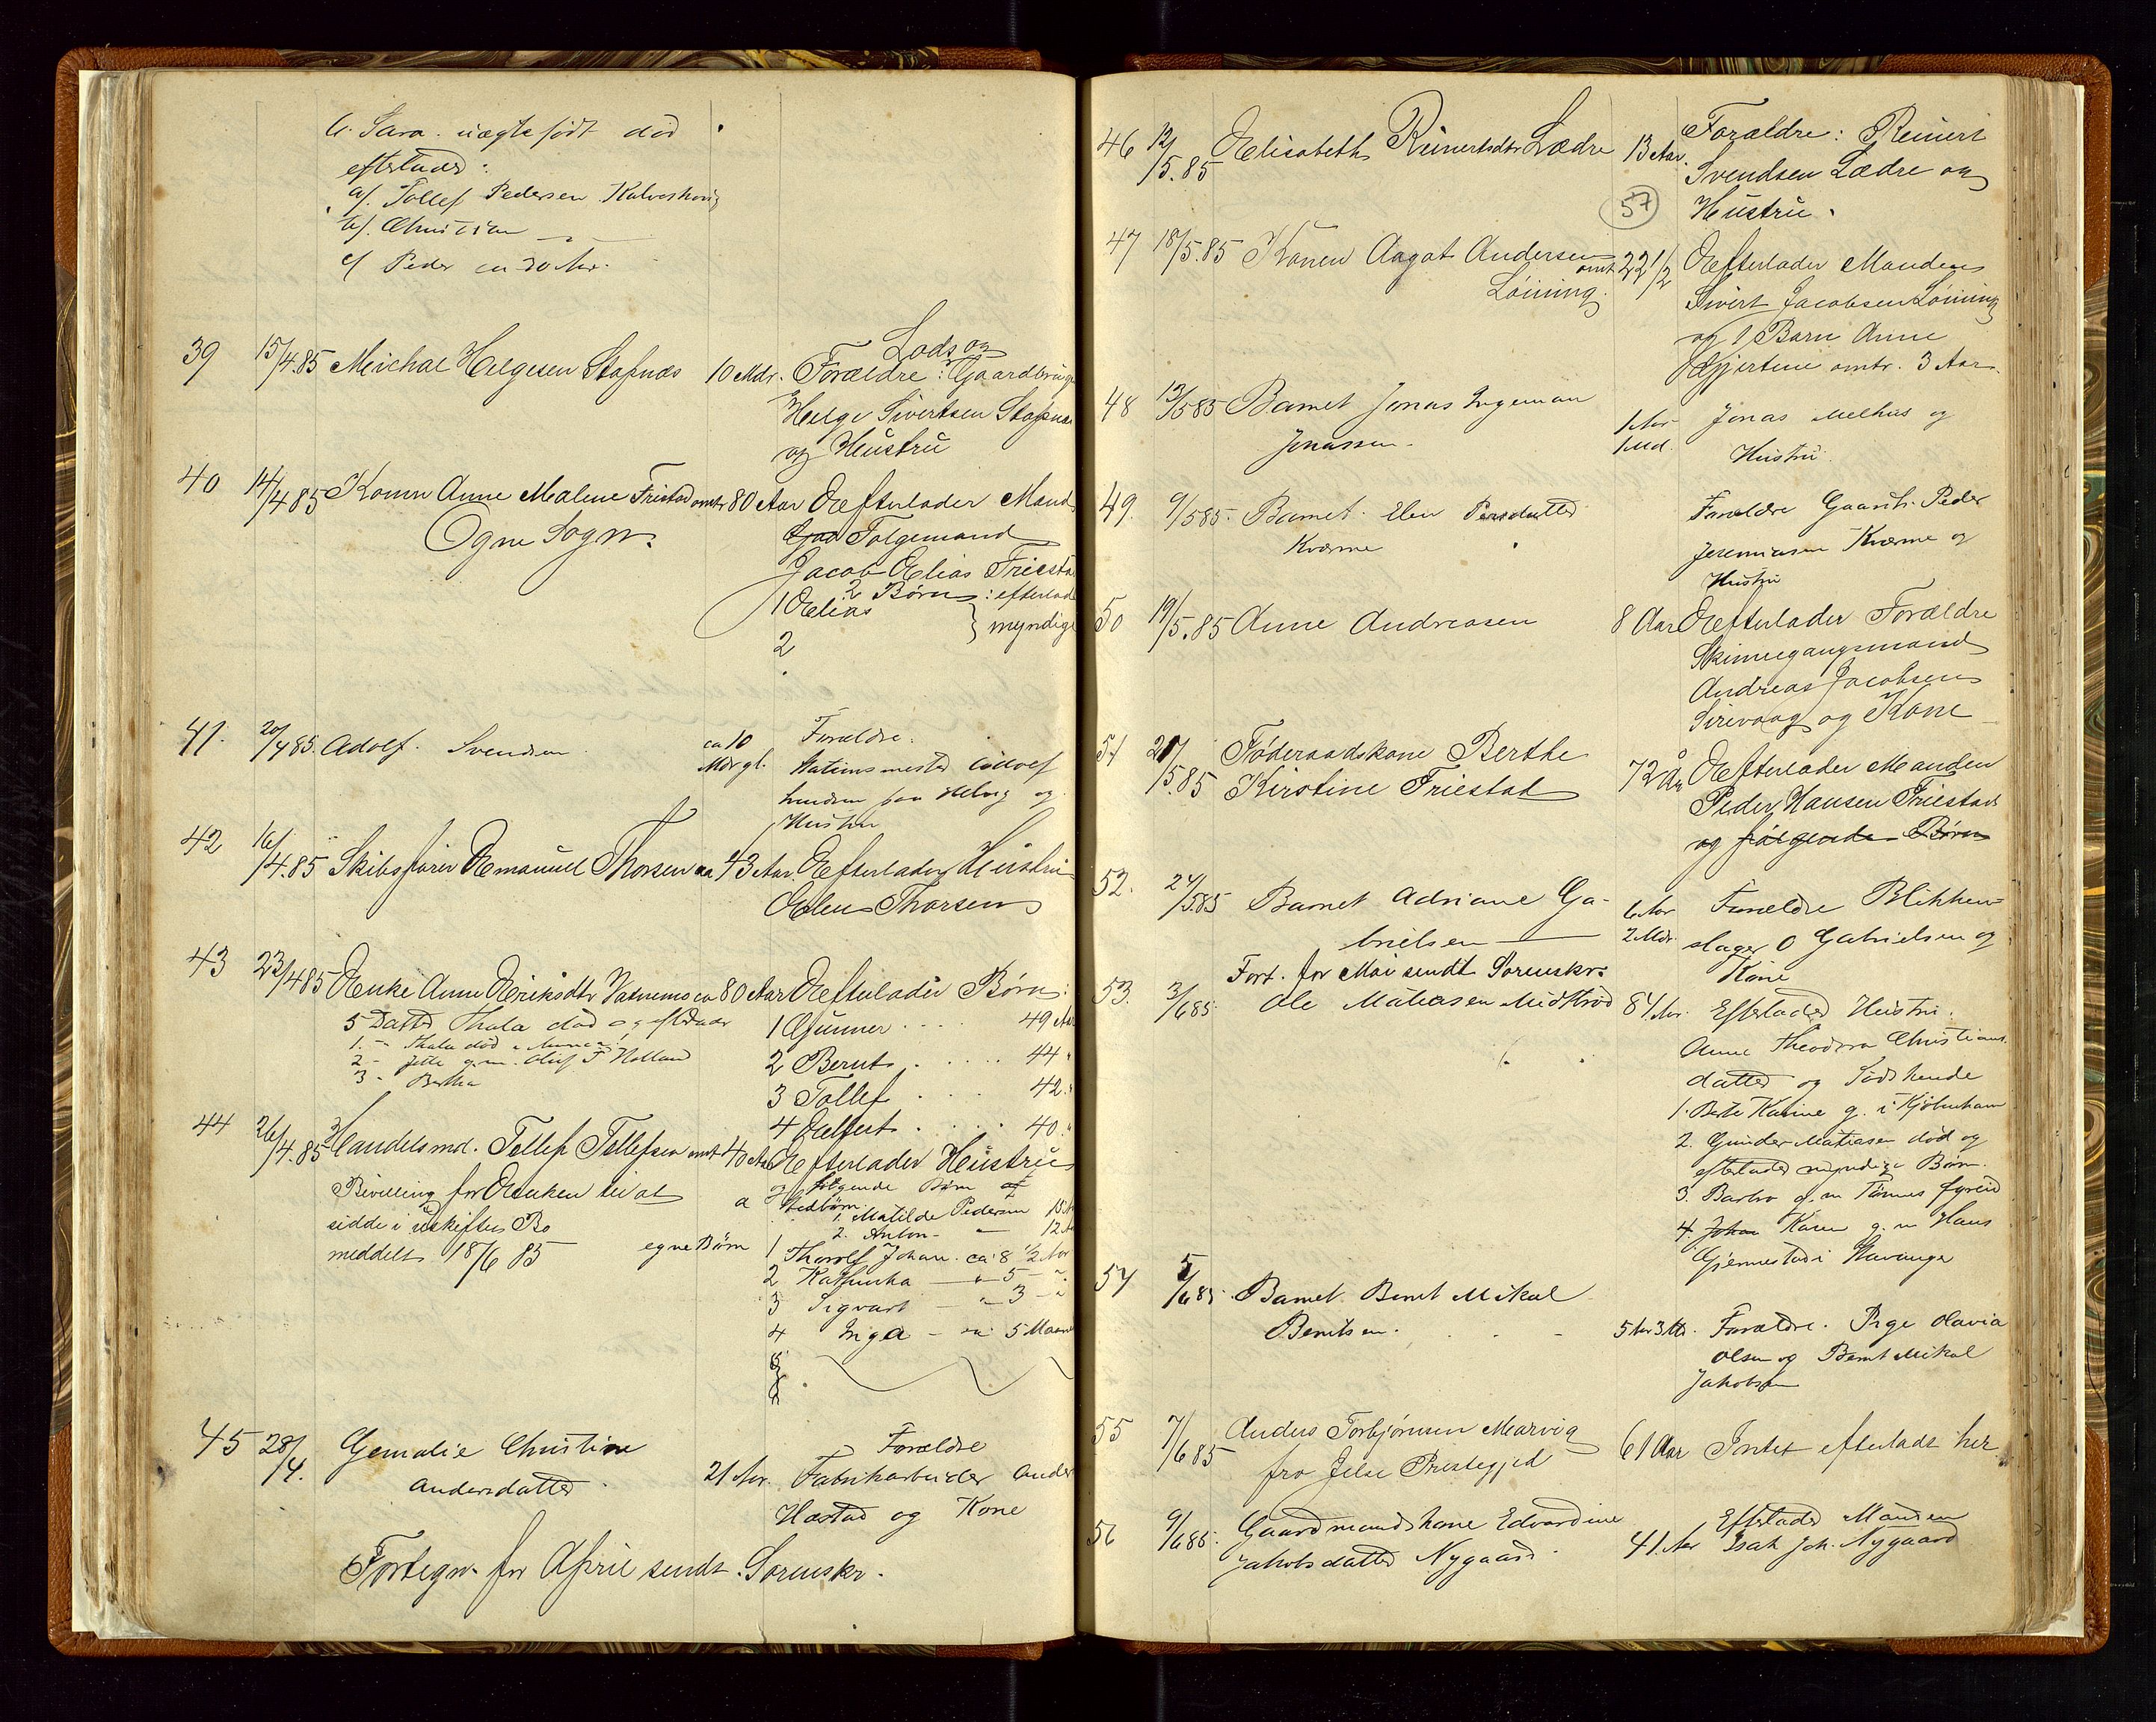 6. Sara. uægte født død
efterlader:
a/. Tollef Pedersen Kalveshovig
b/. Christian —
c/ Peder ca 30 Aar.
39 15/4.85 Meichal Helgesen Stapnæs 10 Mdr. Forældre: Lods og Gaardbruger
Helge Sivertsen Stapnæs
og Hustru
40 14/4 85 Konen Anne Malene Fristad omtr 80 Aar Efterlader Mand
Ogne Sogn. Folgemand
Jacob Elias Friesta
2 Børn : efterlad
1 Elias } myndige
2
41. 20/4 85. Adolf. Svendsen ca 10 Mdr gl. Forældre:
Stationsmester
paa Helvig og
Hustru
42 16/4.85 Skibsfører Emanuel Thorsen ca 43 Aar. Efterlader Hustru
Elen Thorsen
43 23/4 85 Enke Anne Eriksdtr Vatnemo ca 80 Aar Efterlader Børn:
5 Datter Thala død og efterlader
1. - Thala død
2 - Jitte g.m. Oluf T Holland
3 - Bertha
1 Gunner .... 49 Aar
2 Bernt .... 44 "
3 Tollef .... 42 "
4 .... 40 "
44 26/4.85 Handelsmd. Tollef Tollefsen omt 40 Aar Efterlader Hustru
Bevilling for Enken til at
sidde i uskiftet Bo
meddelt 18/6 85
og følgende Børn af
a Stedbørn.
1. Matilde Pedersen 15 Aar
2. Anton - — 12 Aar
egne Børn 1 Thorolf Johan. ca 8 1/2 Aar
2 Kathinka — " 5 —
3 Sigvart — " 3 —
4 Inga — ca 5 Maan
45 28/4. Gemalie Christine
Andersdatter 21 Aar. Forældre
Fabrikarbeider Ander
Hæstad og Kone
Fortegn. for April sendt Sorenskr.
46 12/5.85 Elisabeth Reinertsdtr Lædre 13 Aar. Forældre: Reinert
Svendsen Lædre og
57 Hustru.
47 18/5.85 Konen Aagot Andersen omt 22 1/2 Efterlader Manden
Løining. Sivert Jacobsen Løining
og 1 Barn Anne
Gjertine omtr. 3 Aar.
48 13/5 85 Barnet Jonas Ingeman
Jonassen. 1 Aar 1 Md. Jonas Melhus og
Hustru.
49. 9/5 85. Barnet. Elen Persdatter
Kværme Forældre Gaardb. Peder
Jeremiasen Kværme og
Hustru
50 19/5.85 Anne Andreasen 8 Aar Efterlader Forældre
Skinnegangsmand
Andreas Jacobsen
Sirevaag og Kone
51 21/5.85 Føderaadskone Berthe
Kirstine Friestad 72 Aar Efterlader Manden
Peder Hansen Friestad
og følgende Børn
52. 24/5 85 Barnet Adriane Ga-
brielsen — 6 Aar 2 Mdr. Forældre Blikken-
slager O Gabrielsen og
Kone
Fort. for Mai sendt Sorenskr.
53. 3/6 85. Ole Matiasen Midbrød 84 Aar. Efterlader Hustru.
Anne Theodora Christians
datter og Sødskende
1. Berte Karine g. i Kjøbenhavn
2. Gunder Matiasen død og
efterlader myndige Børn.
3. Barbro g.m Tønnes
4. Johan Karen g.m Hans
Gjennestad i Stavanger
54 5/6 85. Barnet Bernt Mikal
Berntsen. 5 Aar 3 Md. Forældre. Pige Olavia
Olsen og Bernt Mikal
Jakobsen
55 7/6 85 Anders Torbjørnsen Marvig
fra Jelse Præstegjeld 61 Aar Intet efterladt her
56 9/6 85. Gaardmandskone Edvardine
Jakobsdatter Nygaard. 41 Aar Efterlader Manden
Isak Joh. Nygaard